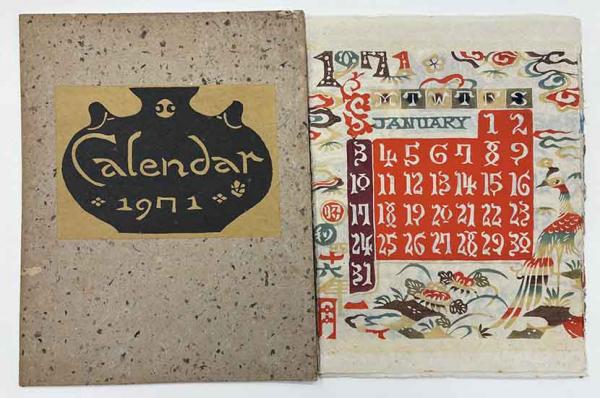 Calendar
1971
1971
S M T W T F S
JANUARY 1 2
3 4 5 6 7 8 9
10 11 12 13 14 15 16
17 18 19 20 21 22 23
24 25 26 27 28 29 30
31
四十六年